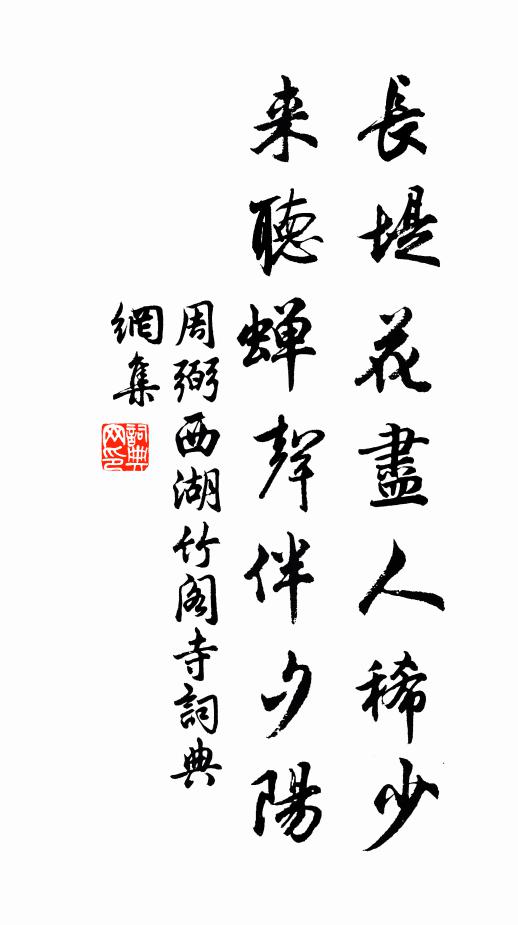 長堤花盡人稀少
来聽蟬聲伴夕陽
周弼西湖竹阁寺詞典
網集
詞典
网印